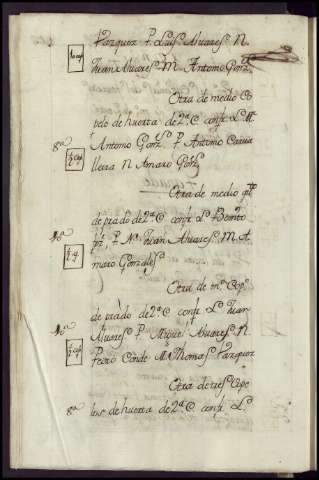 Vazquez P. Luis Alvares. N.
Juan Alvares. M. Antonio Gonz.
Otra de medio Co
pelo de huerta de 2ª C confr. L. M.
Antonio Gonz. P. Antonio Carva
lleira N Amaro Gonz.
Otra de medio
de prado de 2ª C confr L. Benito
P. Mº Juan Alvares. M. A
maro Gonzales
Otra de mº Cop.
de prado de 2ª C confr. L. Juan
Alvares P. Miguel Alvares. N
Pedro Conde Mº Thomas Vazquez
Otra de tres Cope
los de huerta de 2ª C confr. L.